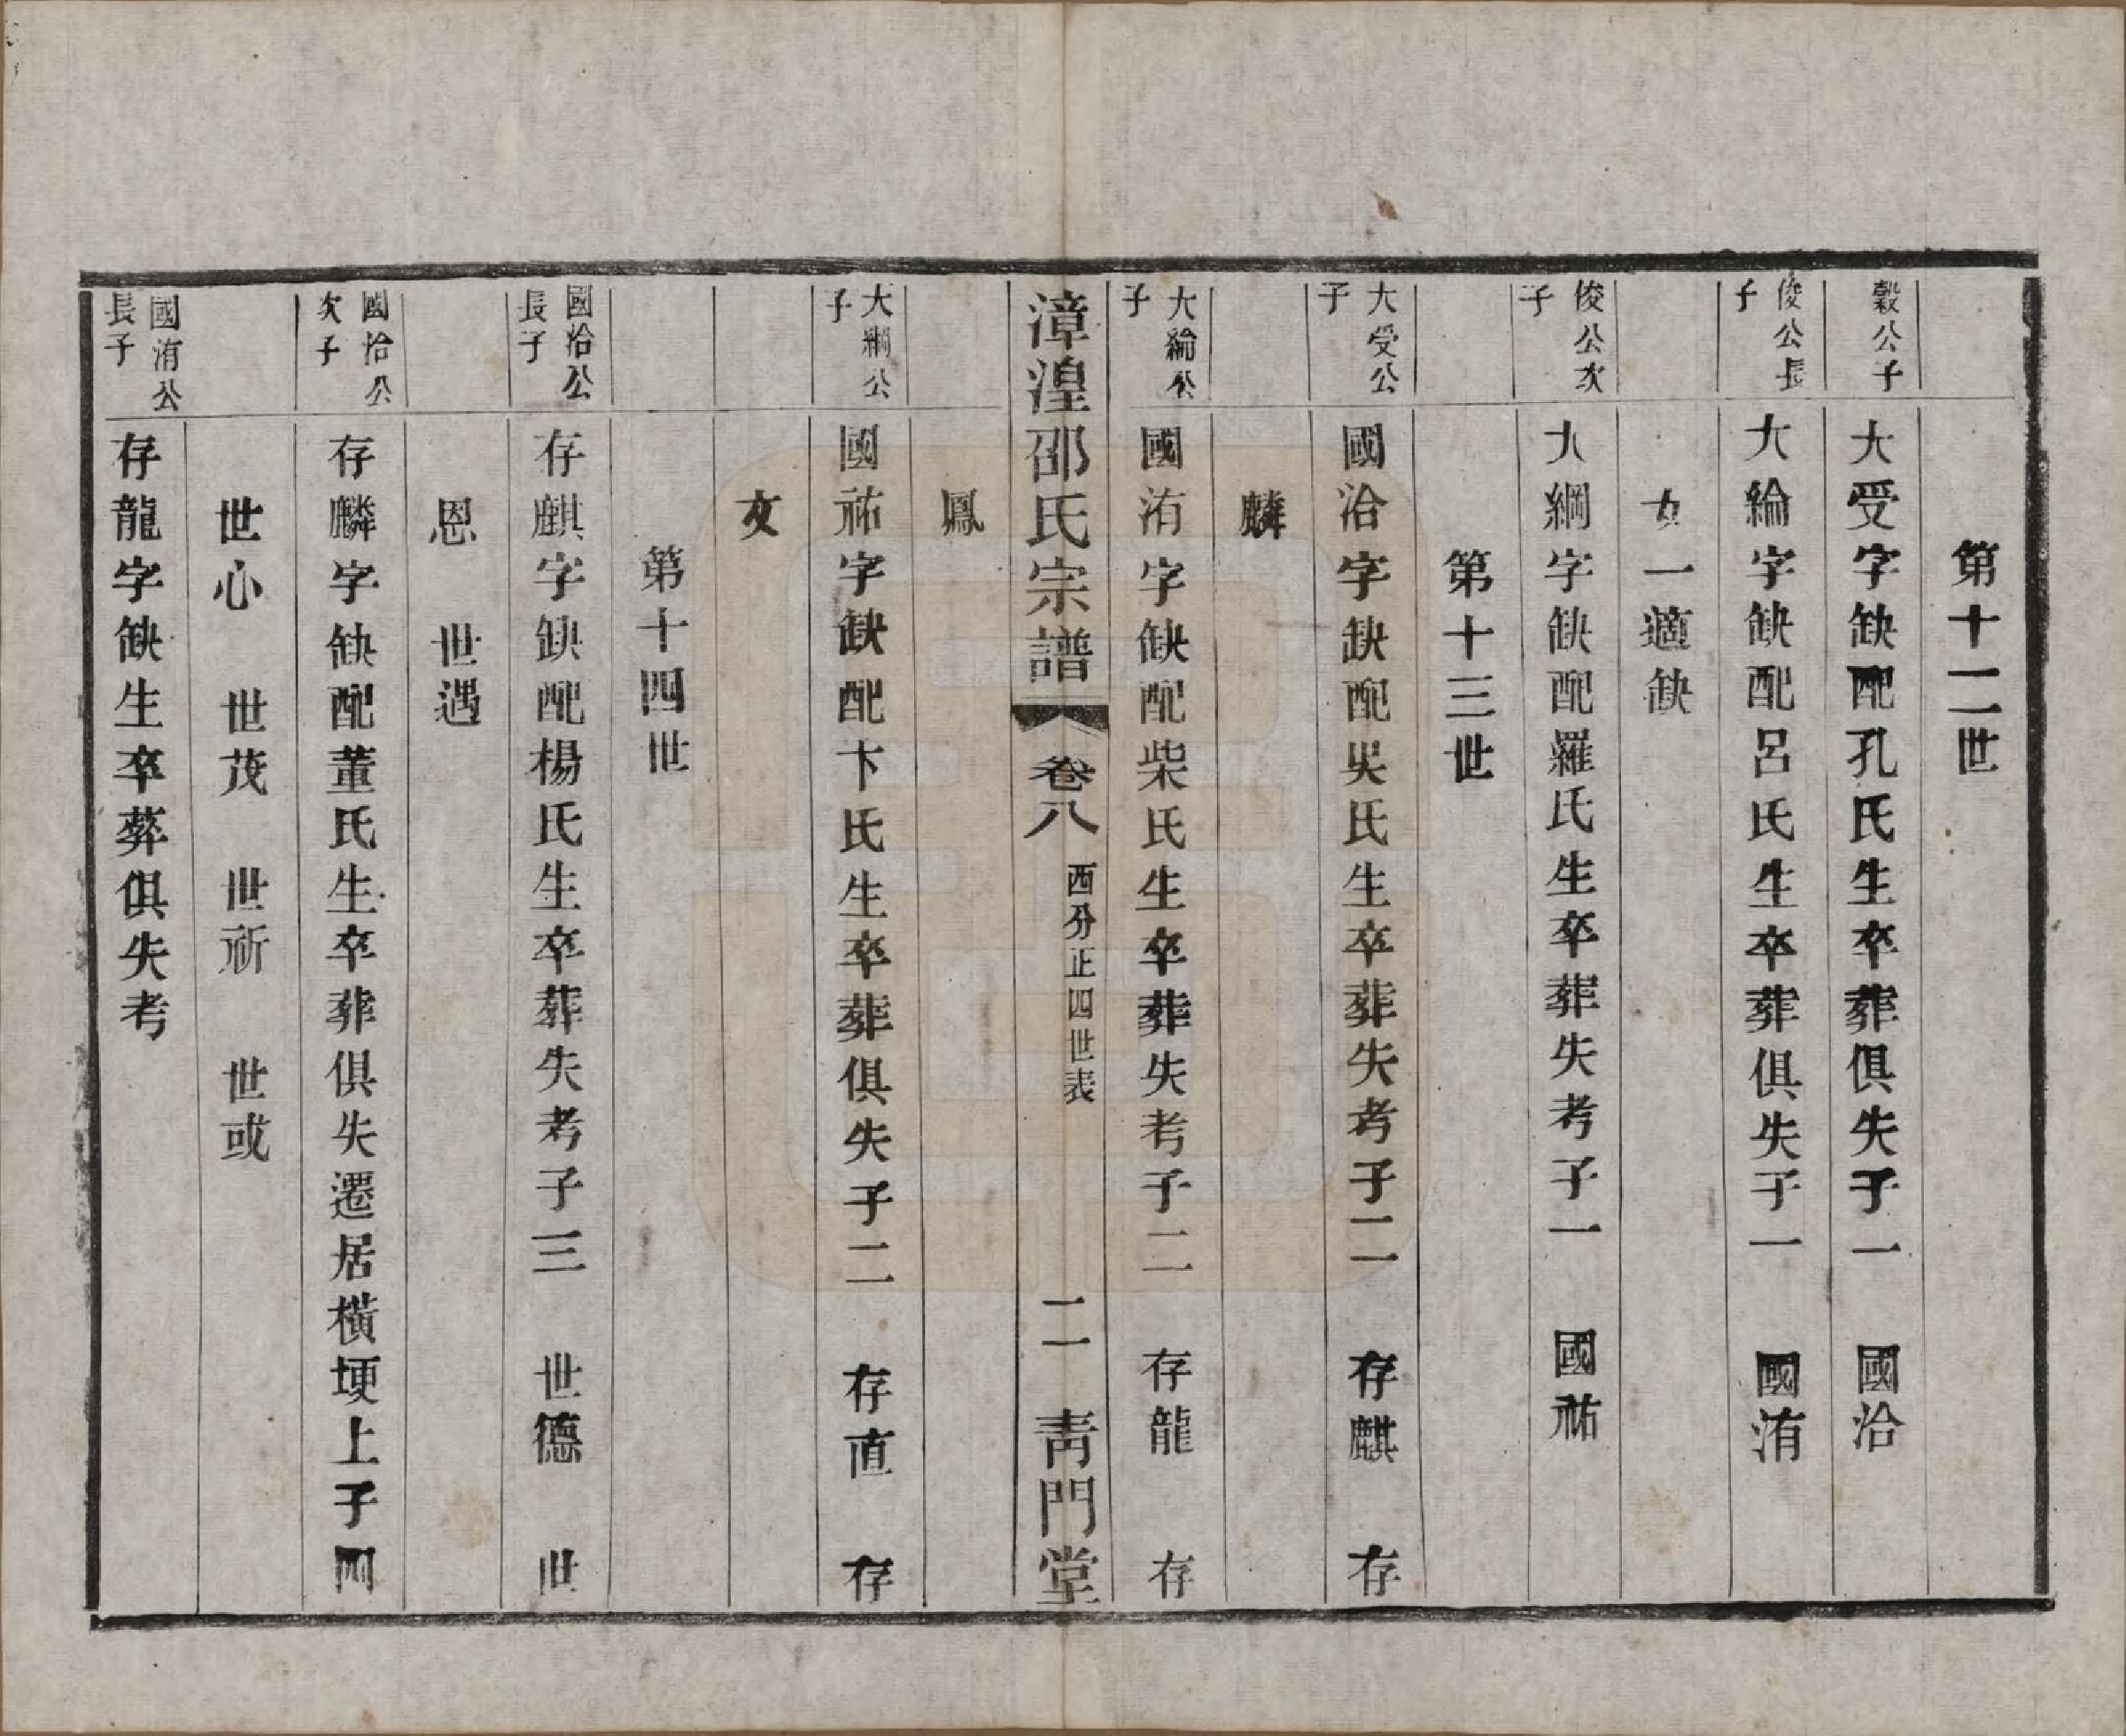 第十二世
穀公子
大受字缺配孔氏生卒葬俱失子一　國洽
俊公長子
大綸字缺配呂氏生卒葬俱失子一　國洧
女一適缺
俊公次子
大綱字缺配羅氏生卒葬失考子一　國祐
第十三世
大受公子
國洽字缺配吳氏生卒葬失考子二　存麒　存
麟
大綸公子
國洧字缺配柴氏生卒葬失考子二　存龍　存
漳湟邵氏宗譜　卷八　西分正四世表　二　靑門堂
鳳
大綱公子
國祐字缺配卞氏生卒葬俱失子二　存直　存
文
第十四世
國洽公長子
存麒字缺配楊氏生卒葬失考子三　世德　世
恩　世遇
國洽公次子
存麟字缺配董氏生卒葬俱失遷居橫埂上子四
世心　世茂　世祈　世或
國洧公長子
存龍字缺生卒葬俱失考